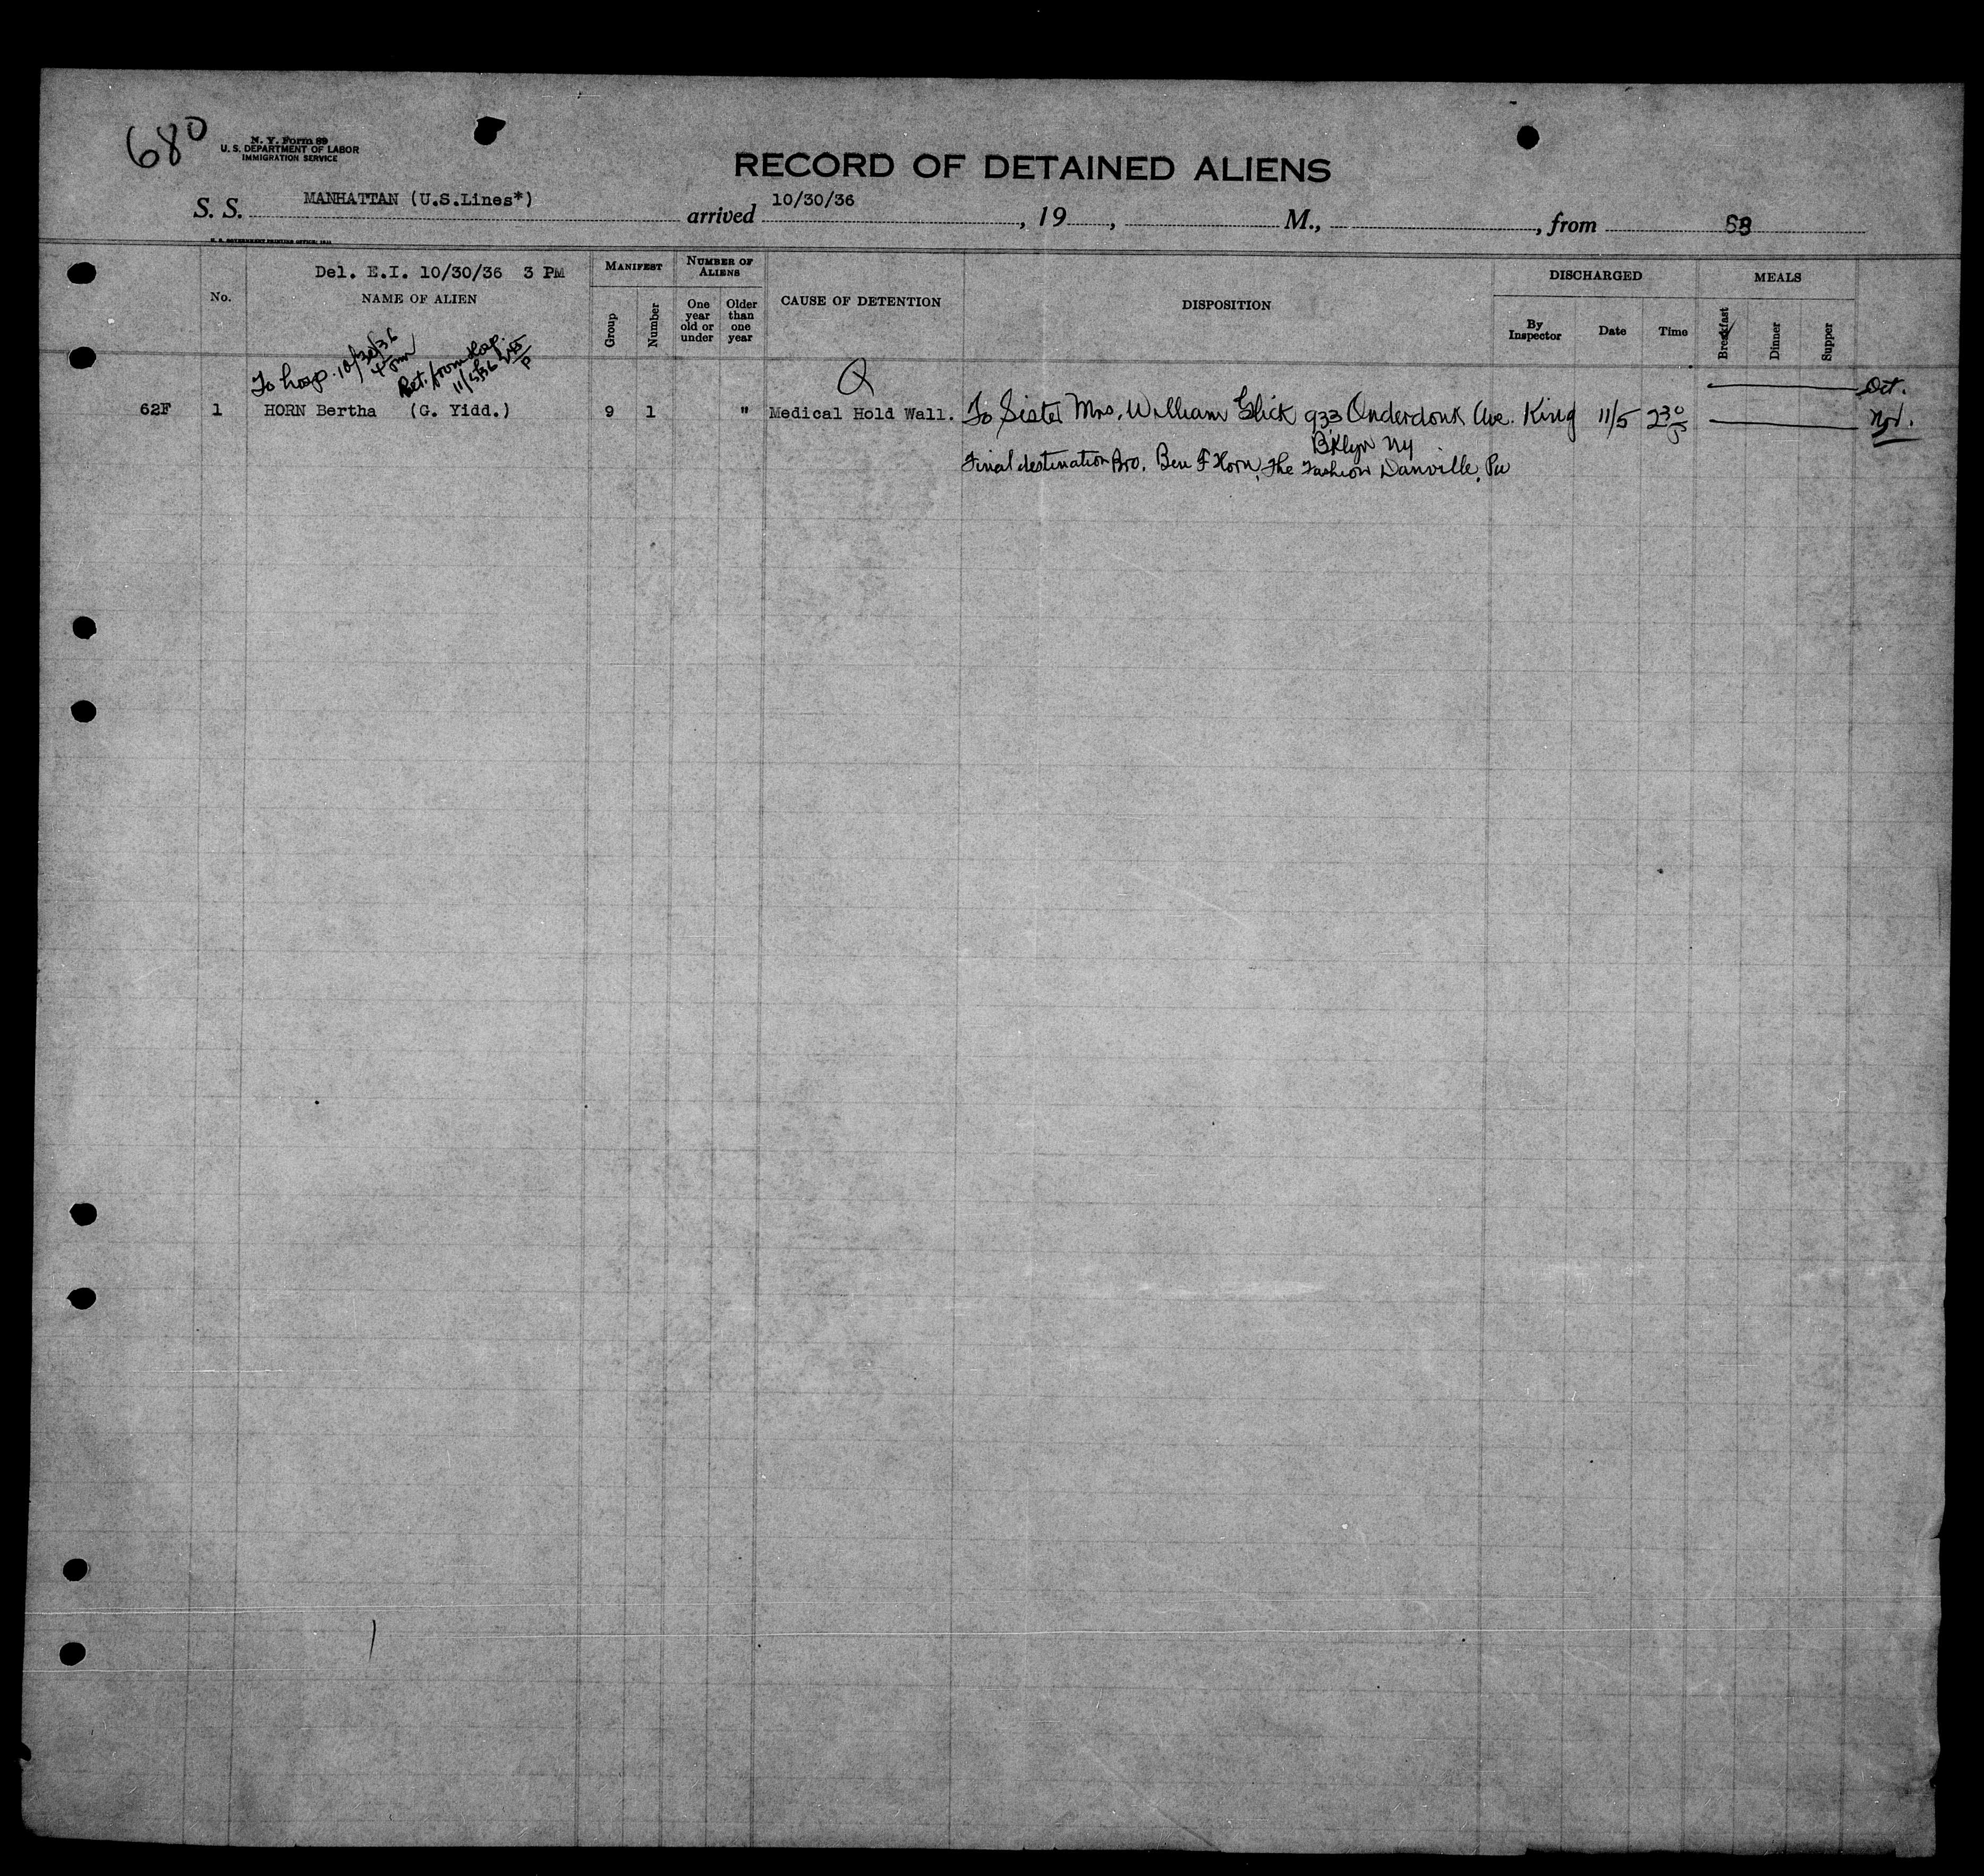 680
N. Y. Form 89
U. S. DEPARTMENT OF LABOR
IMMIGRATION SERVICE
RECORD OF DETAINED ALIENS
S. S. MANHATTAN (U.S.Lines*) arrived 10/30/36, 19, M., , from 68
U. S. GOVERNMENT PRINTING OFFICE:
Del. E.I. 10/30/36 3 PM
No.
NAME OF ALIEN
MANIFEST
Group
Number
NUMBER OF ALIENS
One year old or under
Older than one year
CAUSE OF DETENTION
DISPOSITION
DISCHARGED
By Inspector
Date
Time
MEALS
Breakfast
Dinner
Supper
To hosp. 10/30/36
4 pm
Ret. from Hosp.
11/5/36
Q
Oct.
62F 1 HORN Bertha (G. Yidd.) 9 1 " Medical Hold Wall. To Sister Mrs. William Glick 933 Onderdonk Ave. King 11/5 2 30 P Nov.
Bklyn NY
Final destination Bro. Ben F Horn, The Fashion Danville, Pa